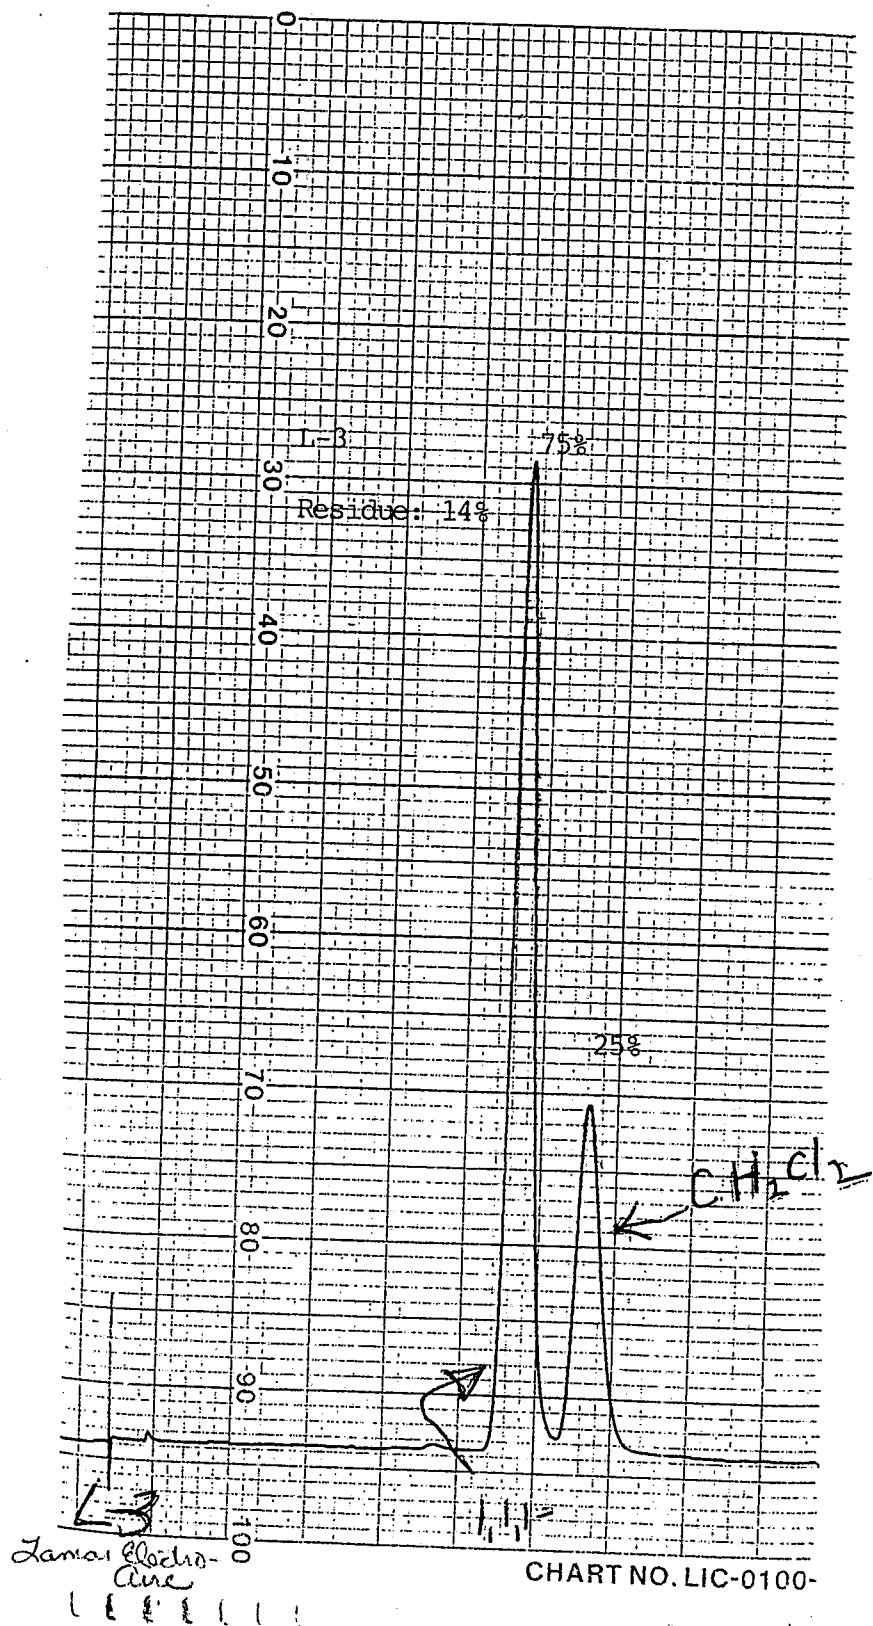 0
10
20
L-3
75%
30
Residue: 14%
40
50
60
25%
70
CH₂Cl₂
80
90
1,1,1-
L-3
100
Lamar Electro-
Aire
CHART NO. LIC-0100-